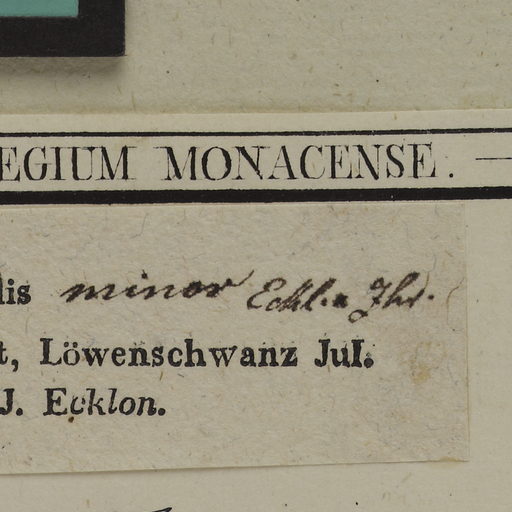 EGIUM MONACENSE. —
lis minor Eckl. u Zhr.
t, Löwenschwanz Jul.
J. Ecklon.